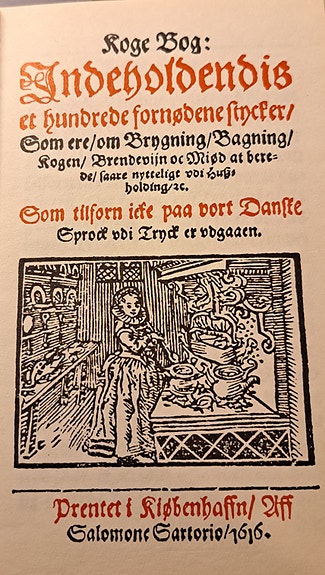 Koge Bog:
Indeholdendis
et hundrede fornødene stycker/
Som ere/om Brygning/Bagning/
Kogen/ Brendevijn oc Miød at bere-
de/ saare nytteligt vdi Huß-
holding/ꝛc.
Som tilforn icke paa vort Danske
Sprock vdi Tryck er vdgaaen.
Prentet i Kiøbenhaffn/ Aff
Salomone Sartorio/1616.